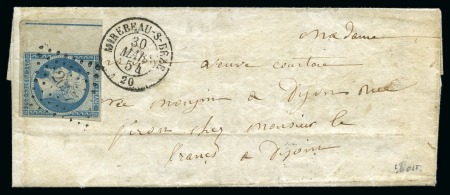 MIREBEAU-S-BÈZE
30
MAI
54
20
Madame
veuve courtois
rue monjoin a Dijon rue
piron chez monsieur le
franc a Dijon